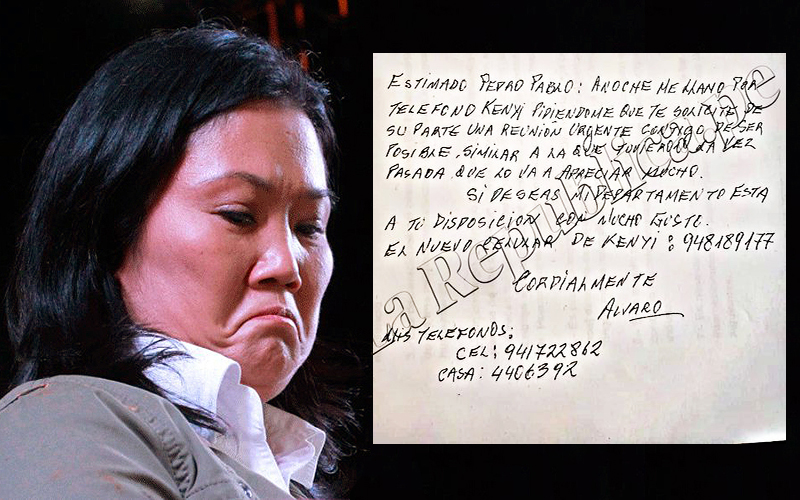 ESTIMADO PEDRO PABLO: ANOCHE ME LLAMO POR
TELEFONO KENYI PIDIENDOME QUE TE SOLICITE DE
SU PARTE UNA REUNIÓN URGENTE CONTIGO DE SER
POSIBLE, SIMILAR A LA QUE TUVIERON LA VEZ
PASADA QUE LO VA A APRECIAR MUCHO.
SI DESEAS MI DEPARTAMENTO ESTA
A TU DISPOSICION CON MUCHO GUSTO.
EL NUEVO CELULAR DE KENYI: 948189177
CORDIALMENTE
ALVARO
MIS TELEFONOS:
CEL: 941722862
CASA: 4406392
La Republica.pe